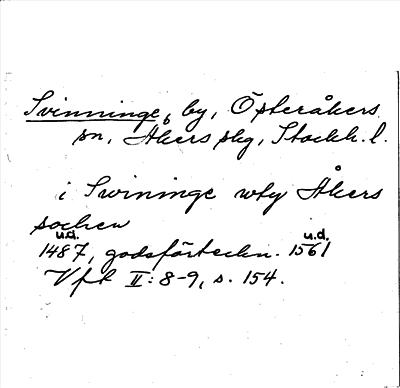 Svinninge, by, Österåkers
sn, Åkers skg, Stockh. l.
i Swininge wty Åkers
sochen
u.d. u.d.
1487, godsförteckn. 1561
Vfl II:8-9, s. 154.